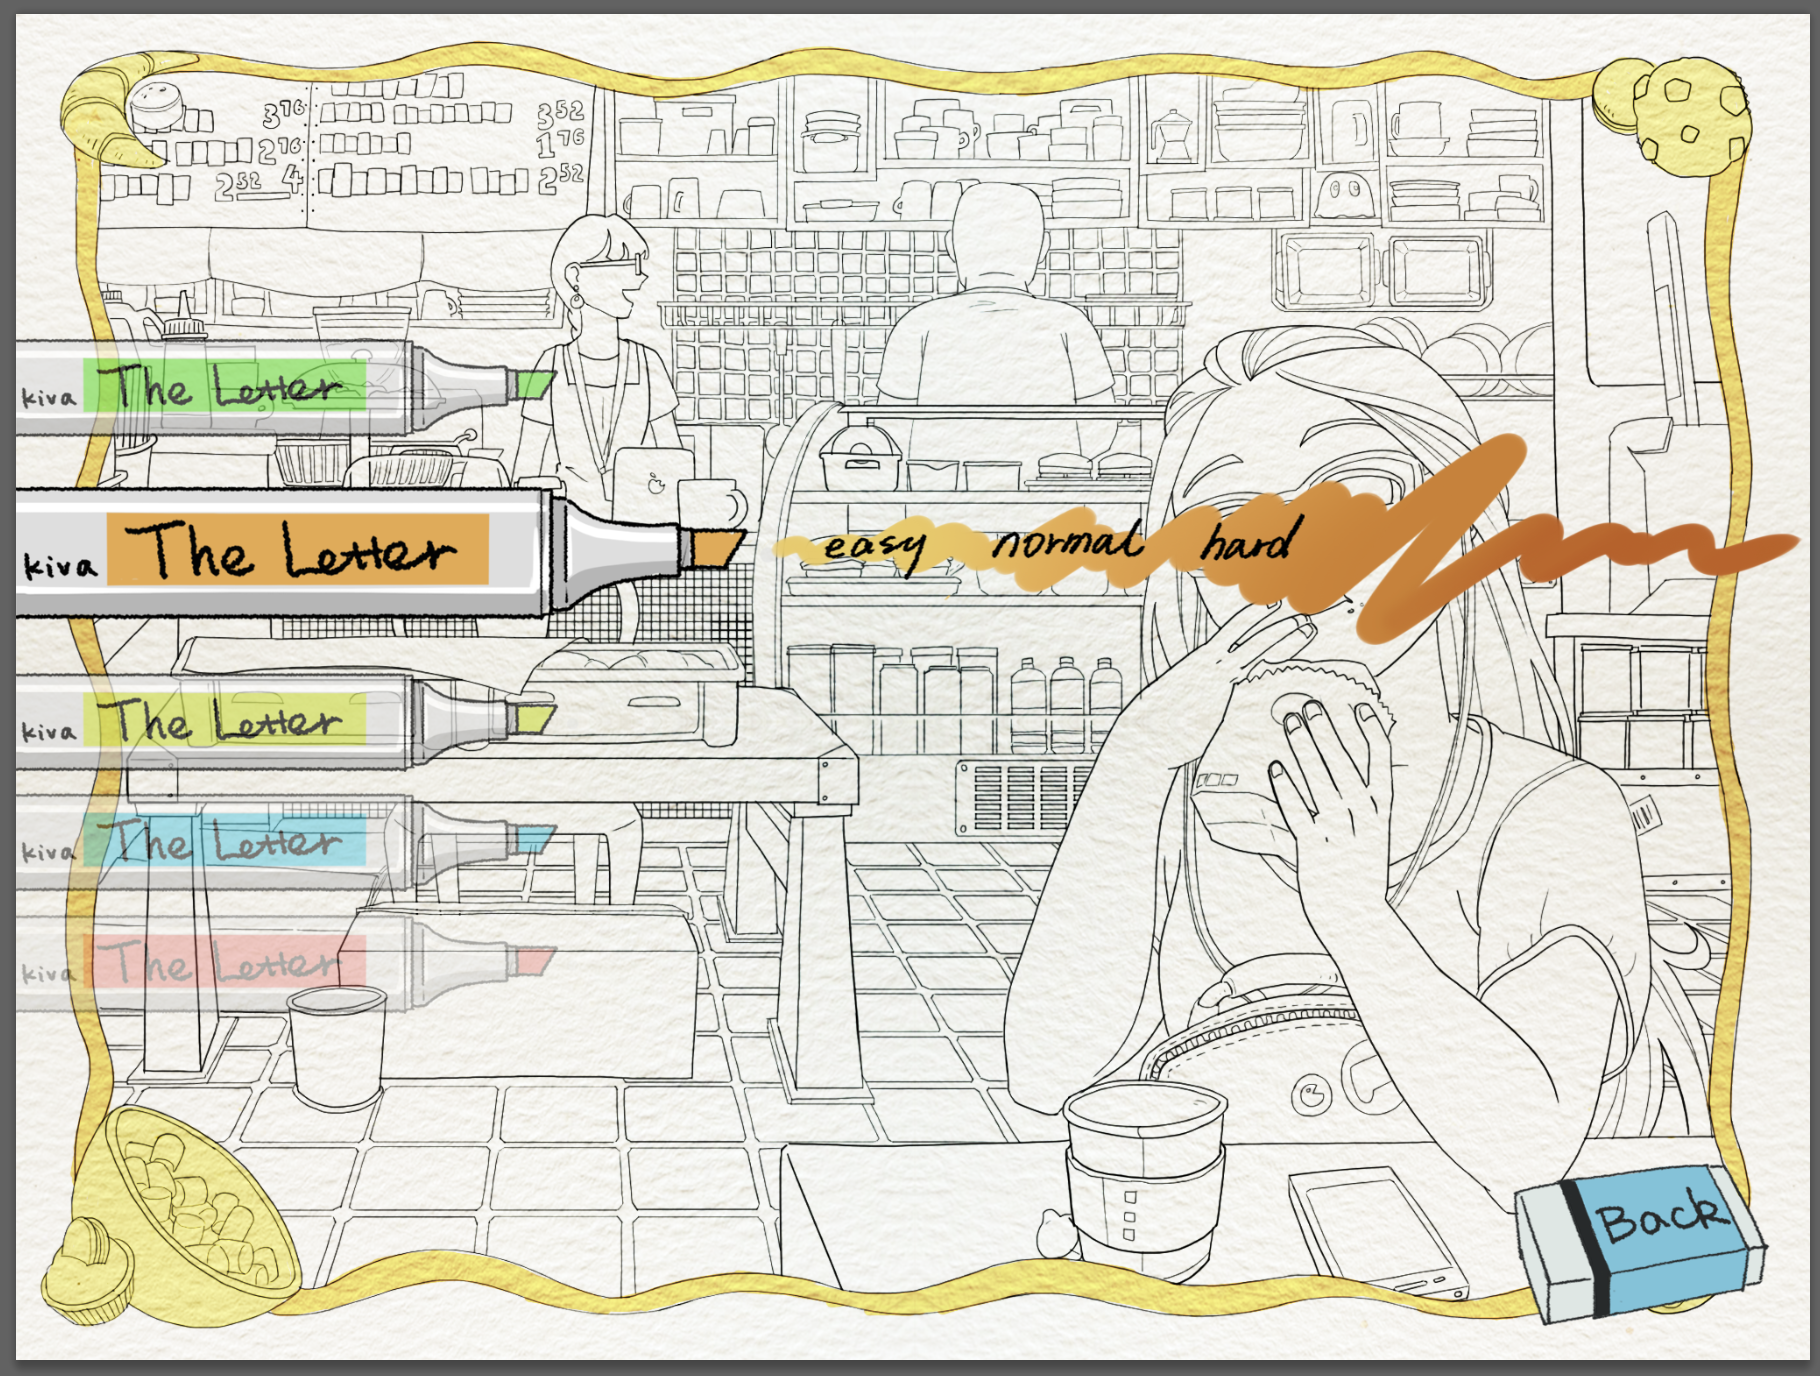 3 76
3 52
1 76
2 76
2 52
4
2 52
kiva The Letter
kiva The Letter
easy normal hard
kiva The Letter
kiva The Letter
kiva The Letter
Back